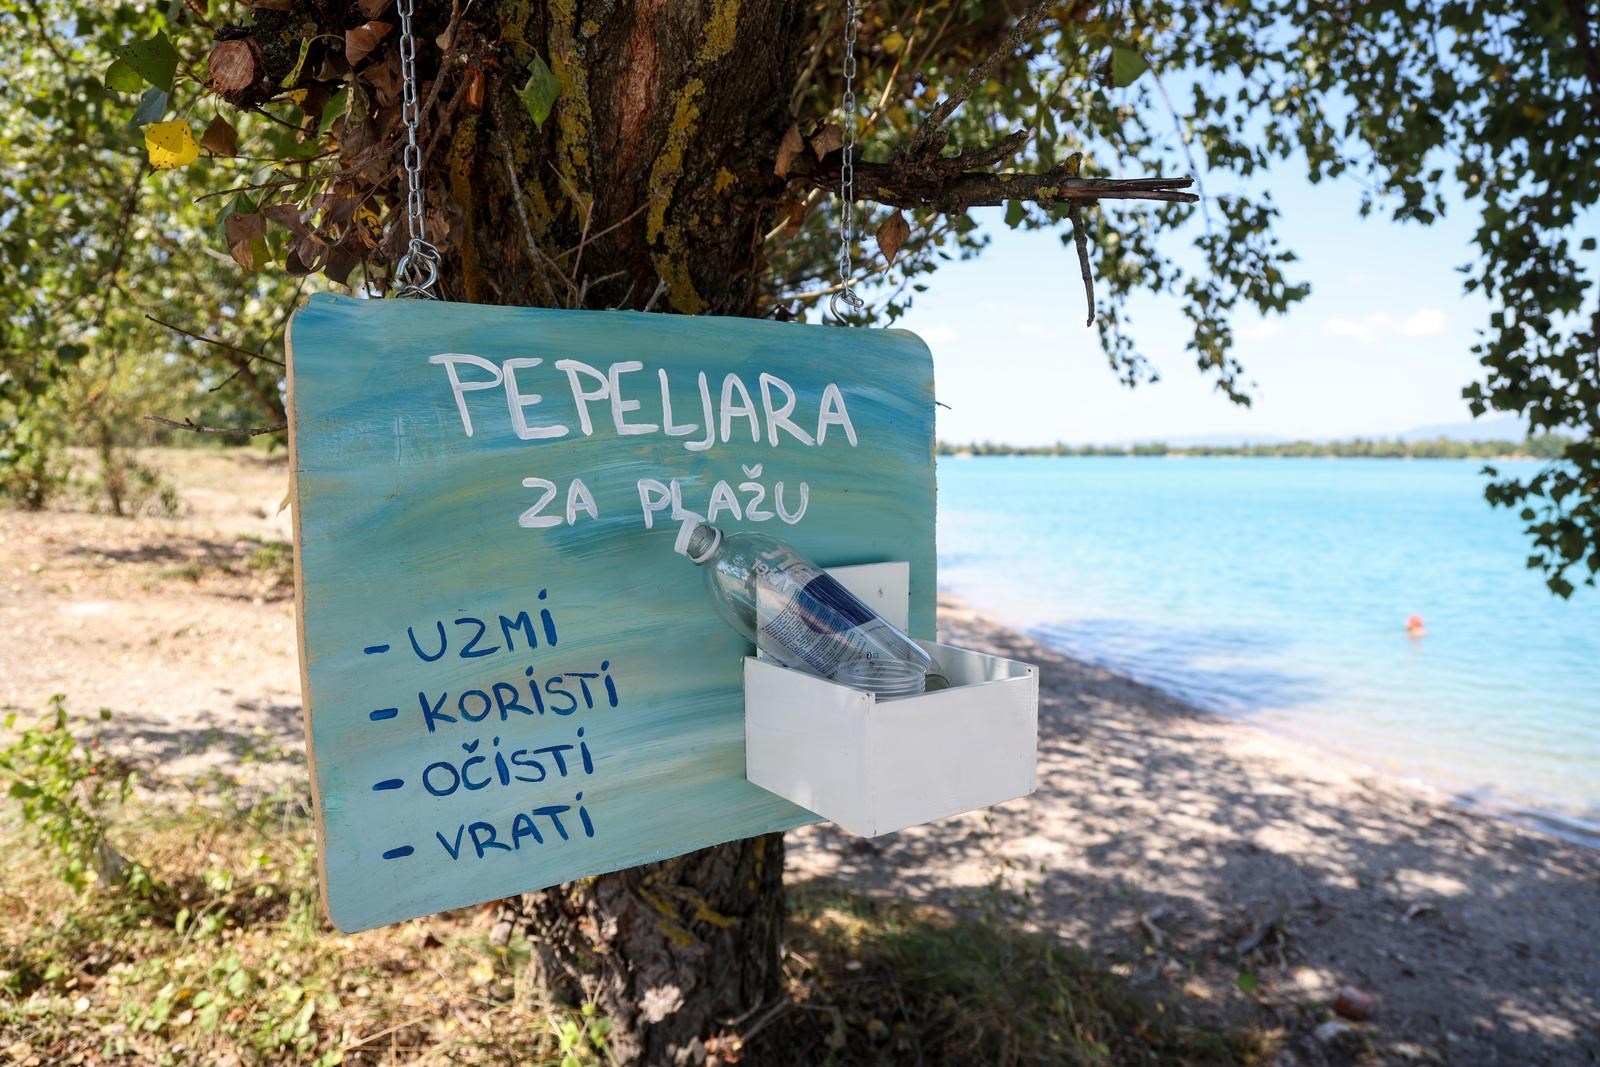 PEPELJARA
ZA PLAŽU
- UZMI
- KORISTI
- OČISTI
- VRATI